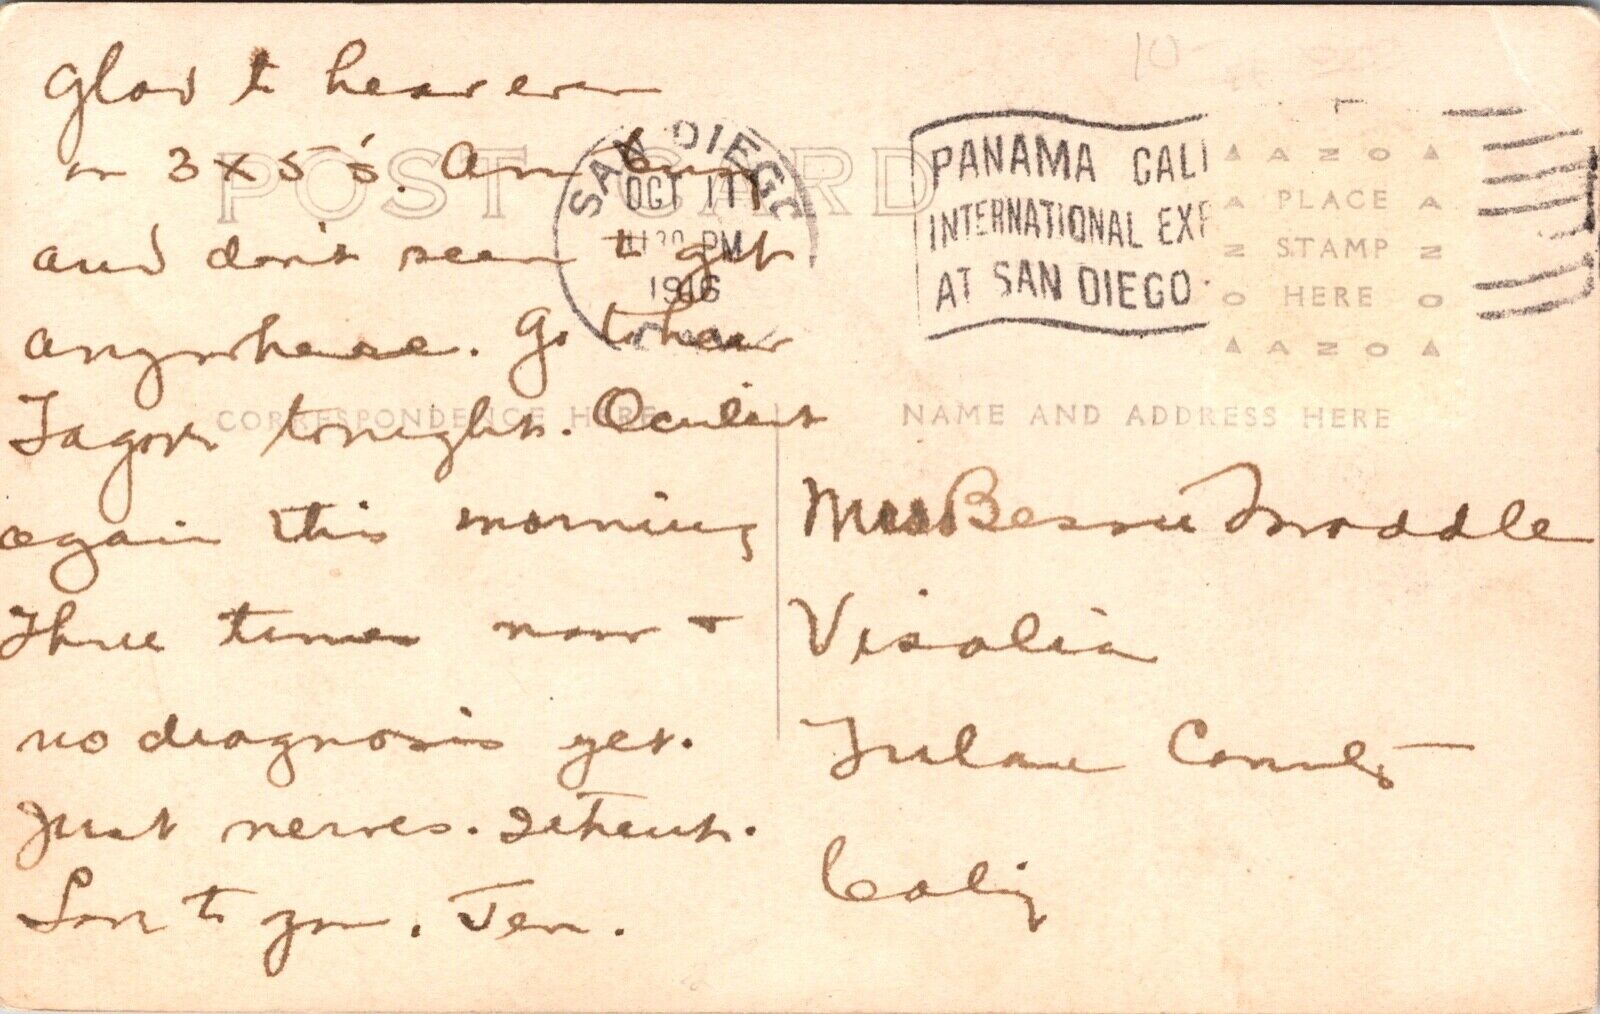 Glad to hear even
on 3 x 5's. Am busy
and don't seem to get
anywhere. Go to hear
Tagore tonight. Oculist
again this morning
Three times now +
no diagnosis yet.
Just nerves.
Love to you. Jen.
POST CARD
CORRESPONDENCE HERE
SAN DIEGO
OCT 11
PM
1916
10
PANAMA CALI
INTERNATIONAL EXP
AT SAN DIEGO
AZO
PLACE
STAMP
HERE
AZO
NAME AND ADDRESS HERE
Mrs Bessie Twaddle
Visalia
Tulare County
Calif